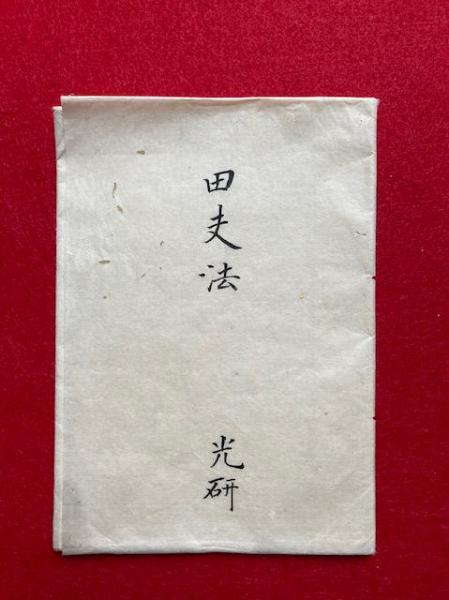 田夫法
光研